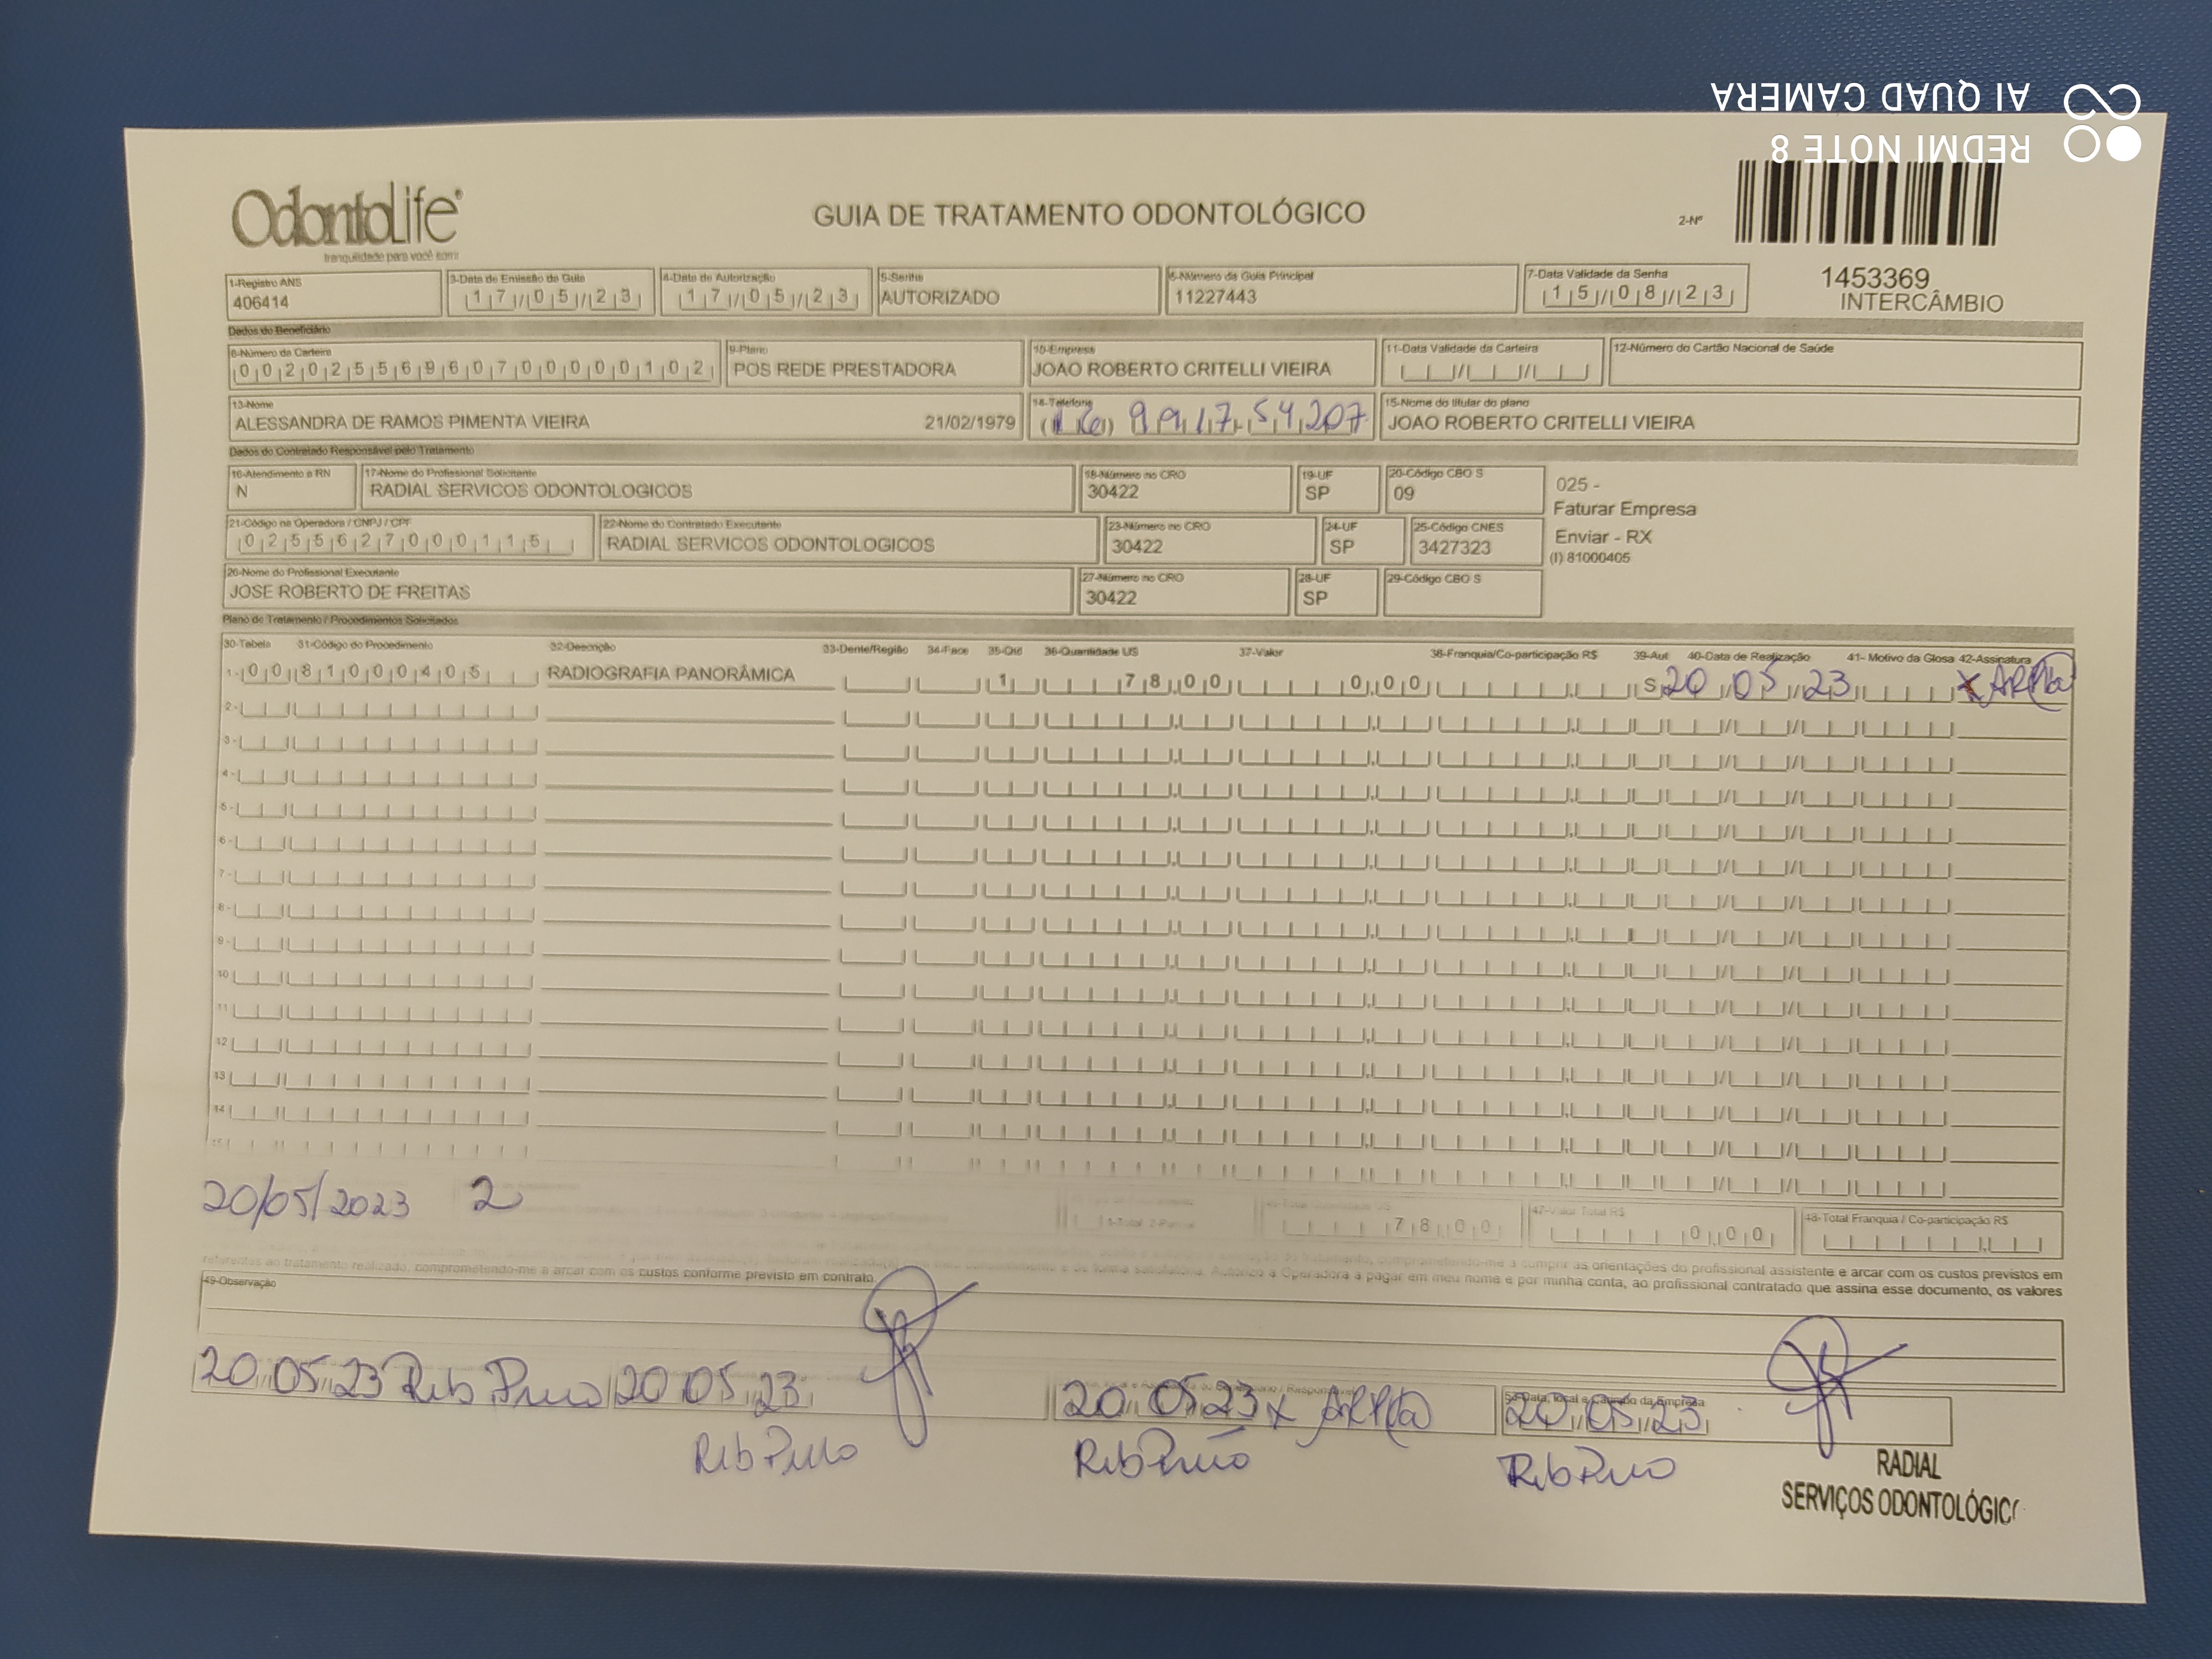 REDMI NOTE 8
AI QUAD CAMERA
OdontoLife®
tranquilidade para você sorrir
GUIA DE TRATAMENTO ODONTOLÓGICO
2-Nº
1453369
INTERCÂMBIO
1-Registro ANS
406414
3-Data de Emissão da Guia
17/05/23
4-Data de Autorização
17/05/23
5-Senha
AUTORIZADO
6-Número da Guia Principal
11227443
7-Data Validade da Senha
15/08/23
Dados do Beneficiário
8-Número da Carteira
00202556960700000102
9-Plano
POS REDE PRESTADORA
10-Empresa
JOAO ROBERTO CRITELLI VIEIRA
11-Data Validade da Carteira
12-Número do Cartão Nacional de Saúde
13-Nome
ALESSANDRA DE RAMOS PIMENTA VIEIRA 21/02/1979
14-Telefone
(16) 9917-54207
15-Nome do titular do plano
JOAO ROBERTO CRITELLI VIEIRA
Dados do Contratado Responsável pelo Tratamento
16-Atendimento a RN
N
17-Nome do Profissional Solicitante
RADIAL SERVICOS ODONTOLOGICOS
18-Número no CRO
30422
19-UF
SP
20-Código CBO S
09
025 -
Faturar Empresa
Enviar - RX
(I) 81000405
21-Código na Operadora / CNPJ / CPF
02556270000115
22-Nome do Contratado Executante
RADIAL SERVICOS ODONTOLOGICOS
23-Número no CRO
30422
24-UF
SP
25-Código CNES
3427323
26-Nome do Profissional Executante
JOSE ROBERTO DE FREITAS
27-Número no CRO
30422
28-UF
SP
29-Código CBO S
Plano de Tratamento / Procedimentos Solicitados
30-Tabela 31-Código do Procedimento 32-Descrição 33-Dente/Região 34-Face 35-Qtd 36-Quantidade US 37-Valor 38-Franquia/Co-participação R$ 39-Aut 40-Data de Realização 41- Motivo da Glosa 42-Assinatura
1- 00 81000405 RADIOGRAFIA PANORÂMICA 1 78,00 0,00 S 20/05/23 X
2-
3-
4-
5-
6-
7-
8-
9-
10
11
12
13
14
15
20/05/2023 2
1-Total 2-Parcial
78,00
47-Valor Total R$
0,00
48-Total Franquia / Co-participação R$
cumprir as orientações do profissional assistente e arcar com os custos previstos em
referentes ao tratamento realizado, comprometendo-me a arcar com os custos conforme previsto em contrato.
Autorizo a Operadora a pagar em meu nome e por minha conta, ao profissional contratado que assina esse documento, os valores
49-Observação
20/05/23 Rib Preto
20/05/23
Rib Preto
20/05/23 X
Rib Preto
53-Data, local e Carimbo da Empresa
20/05/23
Rib Preto
RADIAL
SERVIÇOS ODONTOLÓGIC